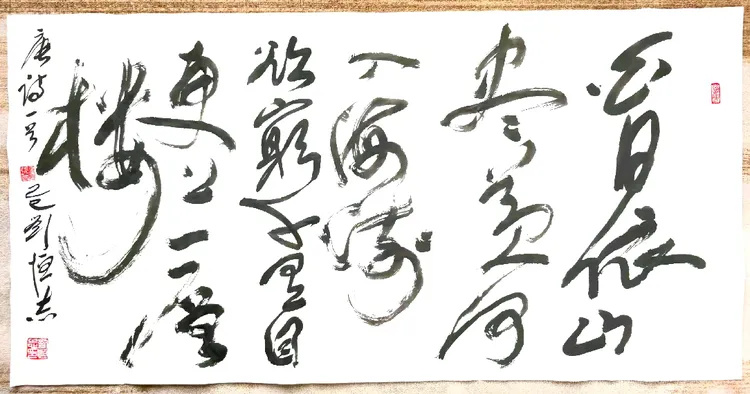 白日依山
尽黄河
入海流
欲窮千里目
更上一層
樓
唐诗一首 劉恒志